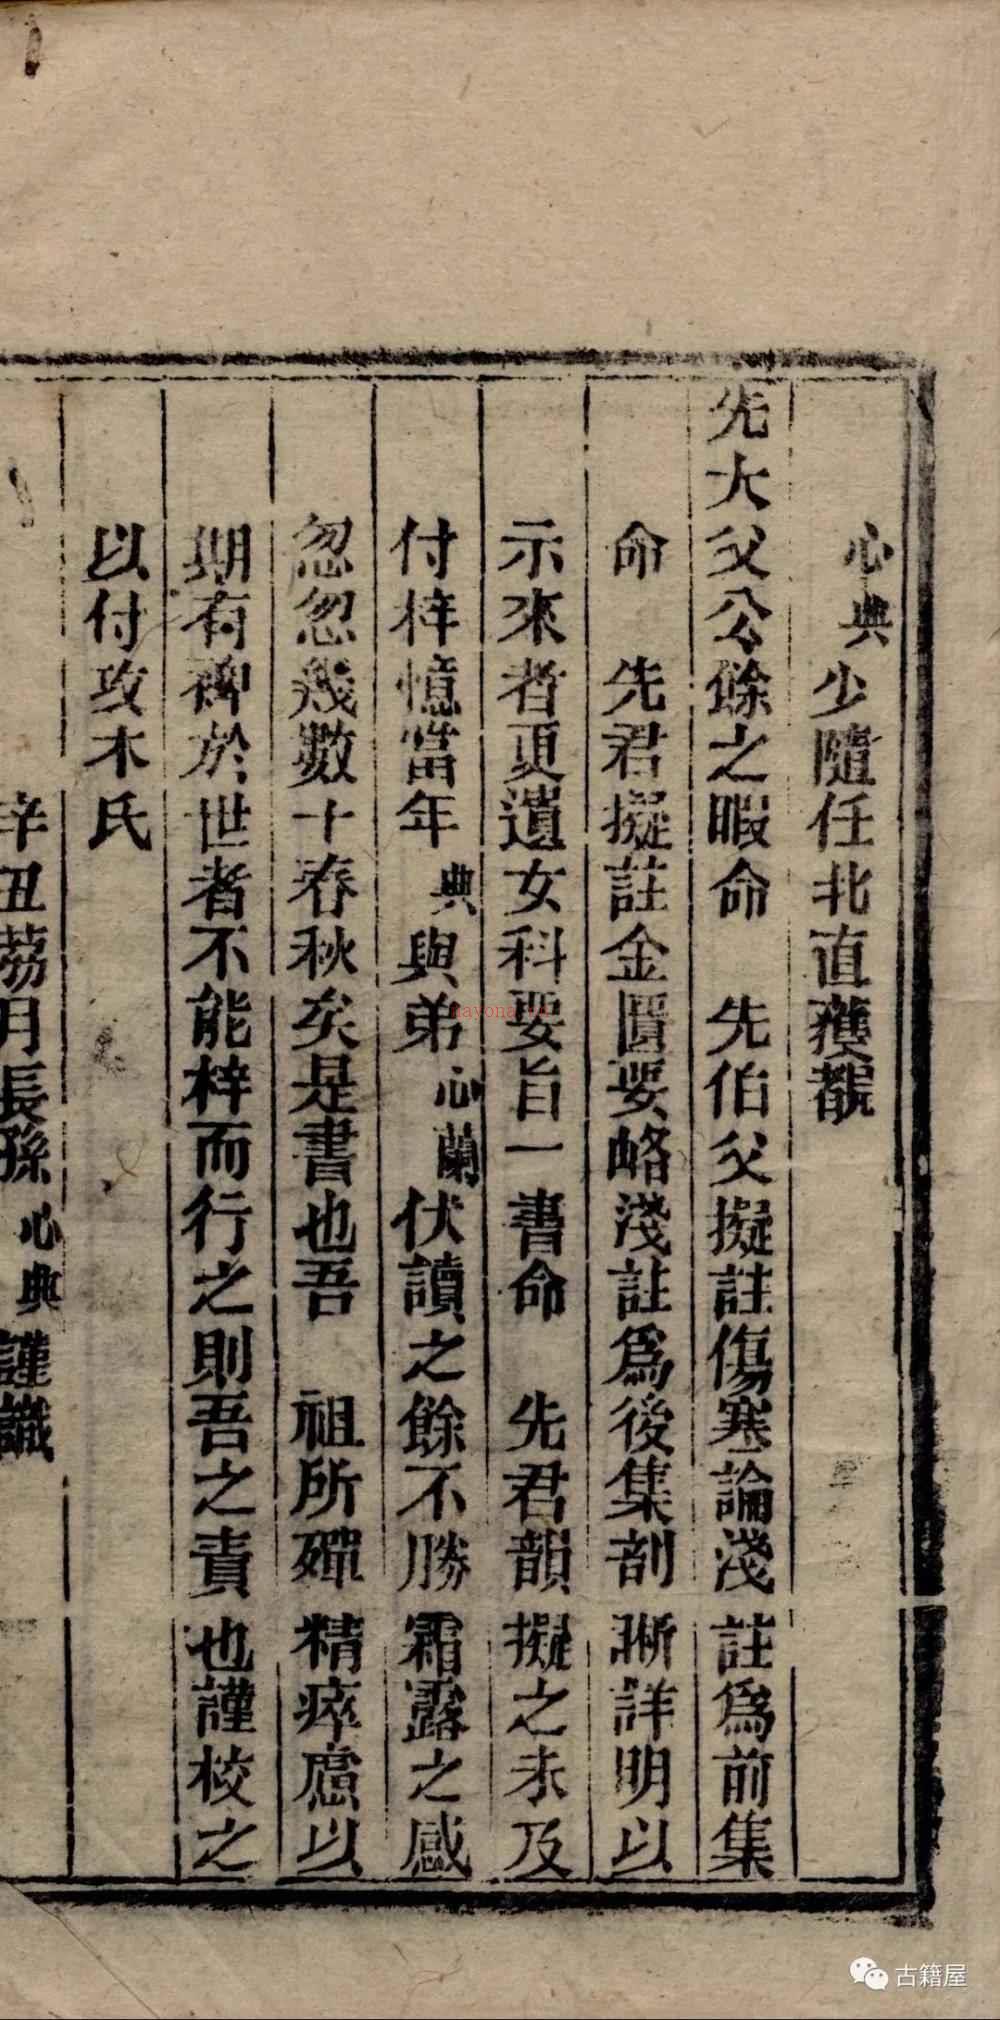 心典少隨任北直獲覩
先大父公餘之暇命　先伯父擬註傷寒論淺註爲前集
命　先君擬註金匱要略淺註爲後集剖晰詳明以
示來者更遺女科要旨一書命　先君韻擬之未及
付梓憶當年典與弟心蘭伏讀之餘不勝霜露之感
忽忽幾數十春秋矣是書也吾　祖所殫精瘁慮以
期有裨於世者不能梓而行之則吾之責也謹校之
以付攻木氏
辛丑荔月長孫心典謹識
nayona.cn
古籍屋